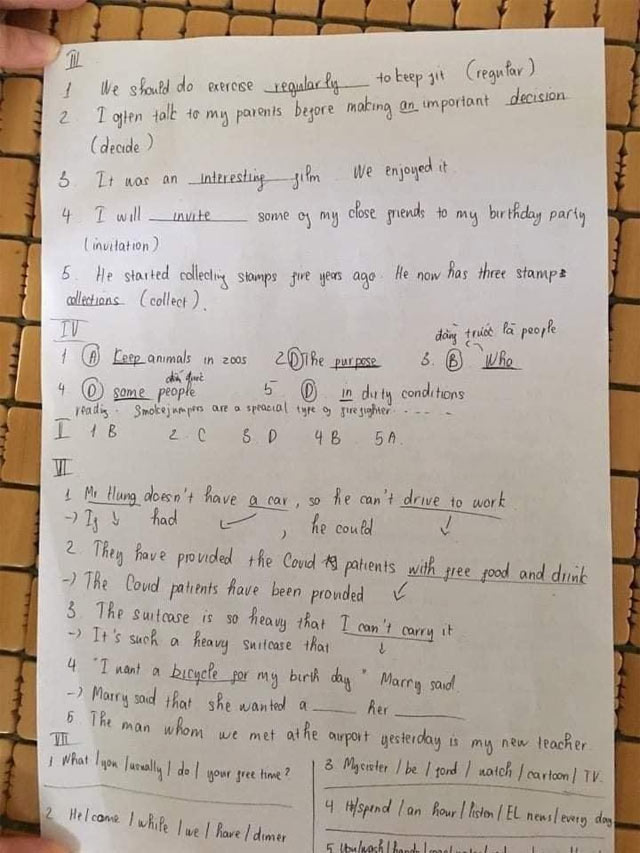 III
1 We should do exercise regularly to keep fit (regular)
2. I often talk to my parents before making an important decision
(decide)
3. It was an interesting film We enjoyed it
4 I will invite some of my close friends to my birthday party
(invitation)
5. He started collecting stamps five years ago. He now has three stamp
collections (collect).
IV
đằng trước là people
1 (A) Keep animals in zoos 2 (D) The purpose 3. (B) Who
4 (D) some people 5 (D). in dirty conditions
reading. Smokejumpers are a spracial type of firefighter. - - - -
I 1 B 2. C 3. D 4 B 5 A.
VI
1 Mr Hung doesn't have a car, so he can't drive to work.
-> If had , he could
2. They have provided the Covid patients with free food and drink
-> The Covid patients have been provided
3. The suitcase is so heavy that I can't carry it
-> It's such a heavy suitcase that
4 "I want a bicycle for my birth day" Marry said.
-> Marry said that she wanted a ____ her ____
5. The man whom we met athe airport yesterday is my new teacher.
VII
1 What / you / usually / do / your free time?
2. He / come / while / we / have / dinner
3. My sister / be / fond / watch / cartoon / TV.
4 It / spend / an hour / listen / EL news / every day
5 You / wash / hands